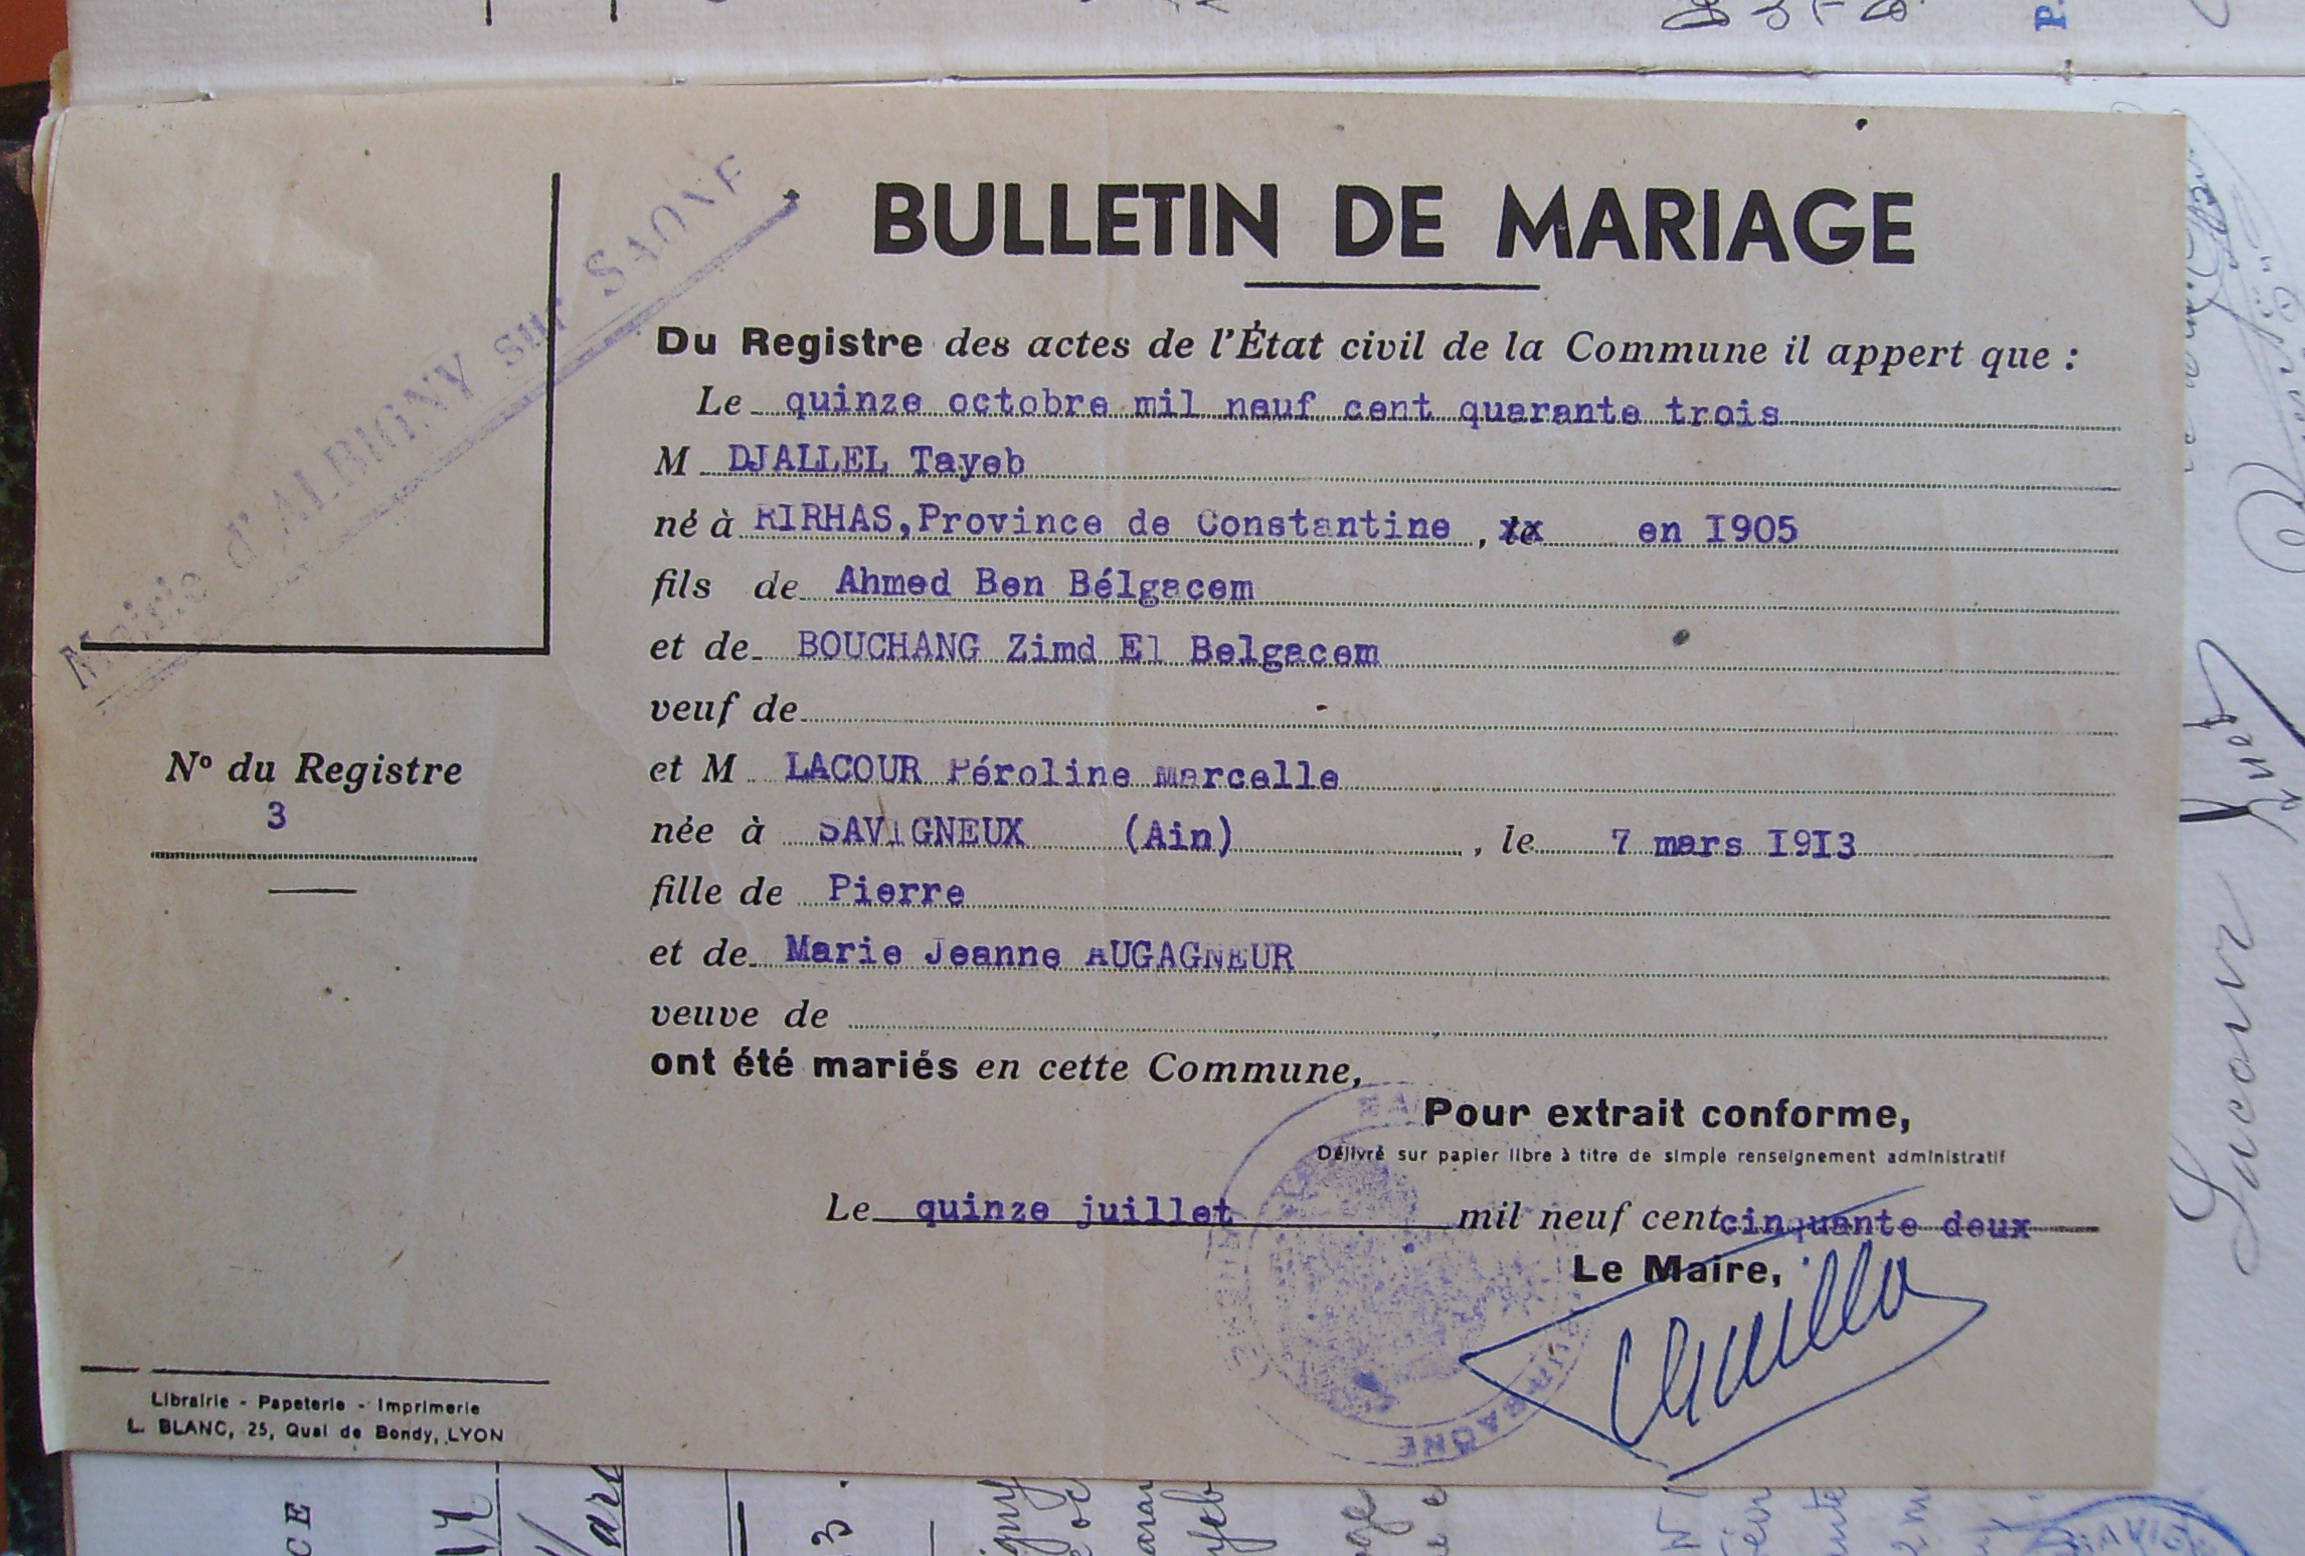 Mairie d'ALBIGNY sur SAONE
BULLETIN DE MARIAGE
Du Registre des actes de l'État civil de la Commune il appert que :
Le quinze octobre mil neuf cent quarante trois
M DJALLEL Tayeb
né à RIRHAS, Province de Constantine , le en 1905
fils de Ahmed Ben Bélgacem
et de BOUCHANG Zimd El Belgacem
veuf de -
et M LACOUR Péroline Marcelle
née à SAVIGNEUX (Ain) , le 7 mars 1913
fille de Pierre
et de Marie Jeanne AUGAGNEUR
veuve de
ont été mariés en cette Commune,
N° du Registre
3
Pour extrait conforme,
Délivré sur papier libre à titre de simple renseignement administratif
Le quinze juillet mil neuf cent cinquante deux
Le Maire,
SAÔNE
Librairie - Papeterie - Imprimerie
L. BLANC, 25, Quai de Bondy, LYON
Lacour
CE
3.